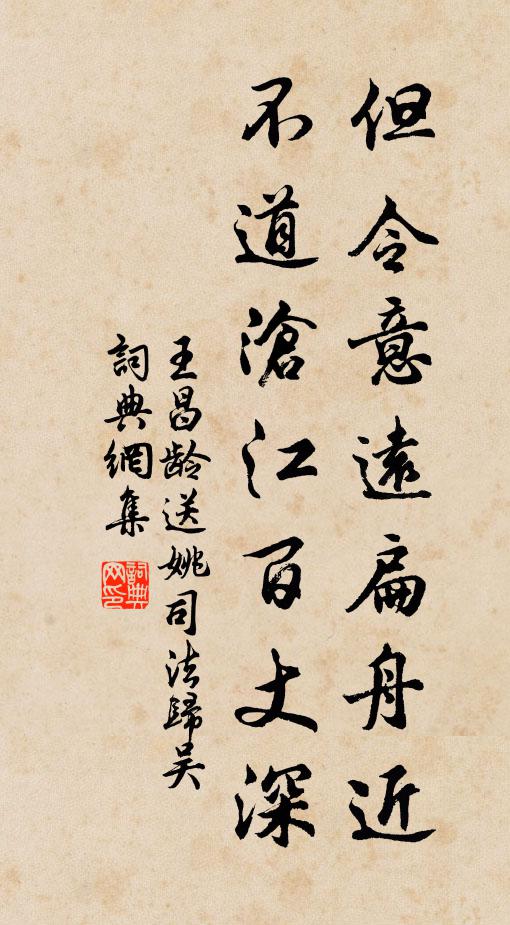 但令意遠扁舟近
不道滄江百丈深
王昌龄送姚司法歸吴
詞典網集
詞典网印